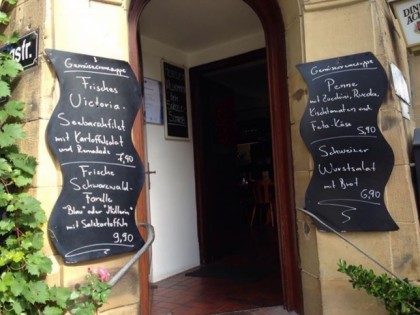 str.
1 Gemüsecremesuppe
Frisches
Victoria-
Seebarschfilet
mit Kartoffelsalat
und Remoulade
7,90
Frische
Schwarzwald-
Forelle
"Blau" oder "Müllerin"
mit Salzkartoffeln
9,90
Gemüsecremesuppe
Penne
mit Zucchini, Rucola,
Kirschtomaten und
Feta-Käse
5,90
Schweizer
Wurstsalat
mit Brot
6,90